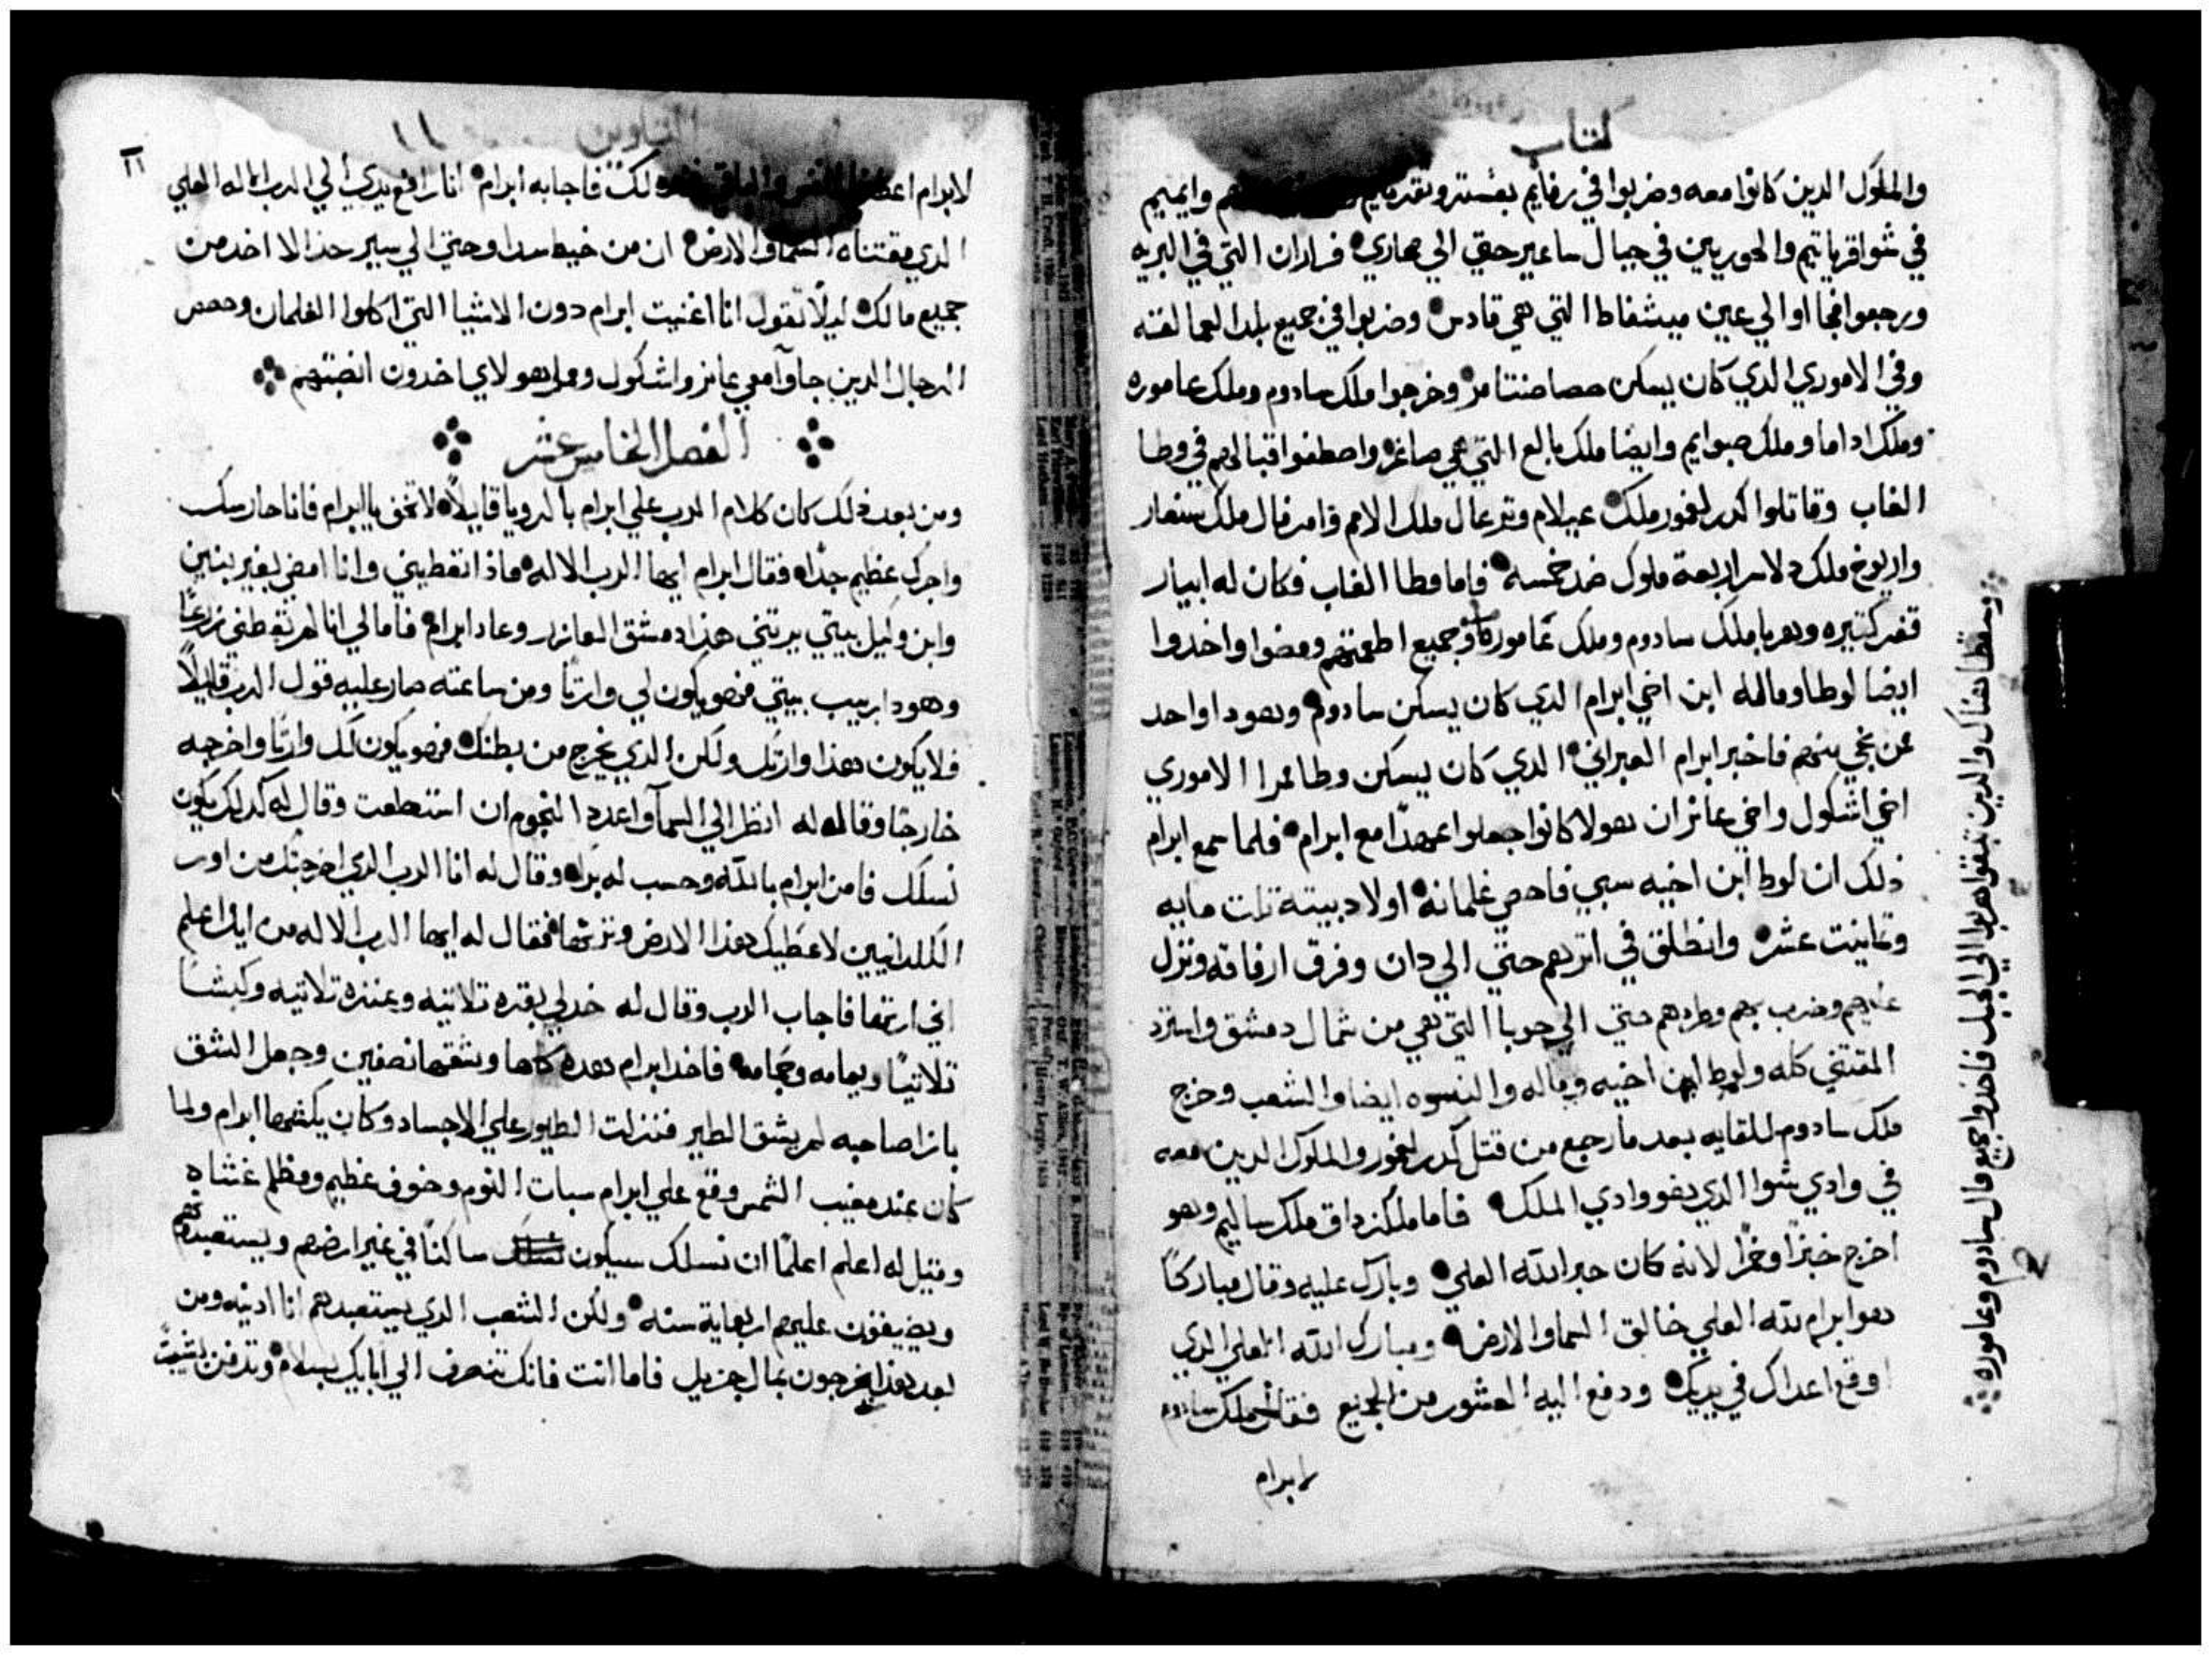 كتاب
والملوك الدين كانوا معه وضربوا في رفايم بعشترو وايميم
في شوا قرياتيم والحوريين في جبال ساعير حتي الي مهاري فاران التي في البريه
ورجعوا فجااوا الي عين ميشفاط التي هي قادس وضربوا في جميع بلد العمالقته
وفي الاموري الدي كان يسكن حصاصنتامر وخرجوا ملك سادوم وملك عاموره
وملك اداما وملك صبوايم وايضا ملك بالع التي هي صاغر واصطفوا قبالهم في وطا
الغاب وقاتلوا كدرلغمور ملك عيلام وترعال ملك الامم وامرفال ملك سنعار
واريوخ ملك دلاسر اربعة ملوك ضد خمسه فاما وطا الغاب فكان له ابيار
قفر كتيره وهربا ملك سادوم وملك عاموره وجميع اطعمتهم ومضوا واخدوا
ايضا لوطا وماله ابن اخي ابرام الدي كان يسكن سادوم وهودا واحد
ممن نجي منهم فاخبر ابرام العبراني الدي كان يسكن وطا ممرا الاموري
اخي اشكول واخي عانر ان هولا كانوا جعلوا عهدا مع ابرام فلما سمع ابرام
ذلك ان لوط ابن اخيه سبي فاحصي غلمانه اولاد بيته تلت مايه
وتمانيت عشر وانطلق في اترهم حتي الي دان وفرق ارفاقه ونزل
عليهم وضرب بهم وطردهم حتي الي حوبا التي هي من شمال دمشق واسترد
المقتني كله ولوط ابن اخيه وماله والنسوه ايضا والشعب وخرج
ملك سادوم للقايه بعد ما رجع من قتل كدرلغمور والملوك الدين معه
في وادي شوا الدي هو وادي الملك فاما ملكزداق ملك ساليم وهو
اخرج خبزا وخمرا لانه كان حبر الله العلي وبارك عليه وقال مباركا
هو ابرام لله العلي خالق السما والارض ومبارك الله العلي الدي
اوقع اعداك في يديك ودفع اليه العشور من الجميع فقال ملك سادوم
لابرام
وسقطا هناك والدين تبقوا هربوا الي الجبل فاخدوا جميع مال سادوم وعاموره
التكوين ١١
١١
لابرام اعطني لك فاجابه ابرام انا رافع يدي الي الرب الاله العلي
الدي مقتناه السما والارض ان من خيط سدا وحتي الي سير حدا لا اخد من
جميع مالك ليلا تقول انا اغنيت ابرام دون الاشيا التي اكلوا الغلمان وحصص
الرجال الدين جاوا معي عانر واشكول وممرا هولاي اخدون انصبتهم
الفصل الخامس عشر
ومن بعد ذلك كان كلام الرب علي ابرام بالرويا قايلا لا تخف يا ابرام فانا حارسك
واجرك عظيم جدا فقال ابرام ايها الرب الاله ماذا تعطيني وانا امضي بغير بنين
وابن وكيل بيتي يرتني هذا دمشق العازر وعاد ابرام فاما لي انا لم تعطني زرعا
وهودا ربيب بيتي فهو يكون لي وارتا ومن ساعته صار عليه قول الرب قايلا
فلا يكون هدا وارتك ولكن الدي يخرج من بطنك فهو يكون لك وارتا واخرجه
خارجا وقال له انظر الي السما واعدد النجوم ان استطعت وقال له كدلك يكون
نسلك فامن ابرام بالله وحسب له برا وقال له انا الرب الدي اخرجتك من اور
الكلدانيين لاعطيك هذا الارض وترتها فقال له ايها الرب الاله من اين اعلم
اني ارتها فاجاب الرب وقال له خد لي بقره تلاتيه وعنزه تلاتيه وكبشا
تلاتيا ويمامه وحمامه فاخد ابرام هده كلها وشقها نصفين وجعل الشق
بازا صاحبه لم يشق الطير فنزلت الطيور علي الاجساد وكان يكشها ابرام ولما
كان عند مغيب الشمس وقع علي ابرام سبات النوم وخوف عظيم ومظلم غشاه
وقيل له اعلم اعلما ان نسلك سيكون ساكنا في غير ارضهم ويستعبدهم
ويضيقون عليهم اربعماية سنه ولكن الشعب الدي يستعبدهم انا ادينه ومن
بعد هدا يخرجون بمال جزيل فاما انت فانك تنصرف الي اباتك بسلام وتدفن بشيبت